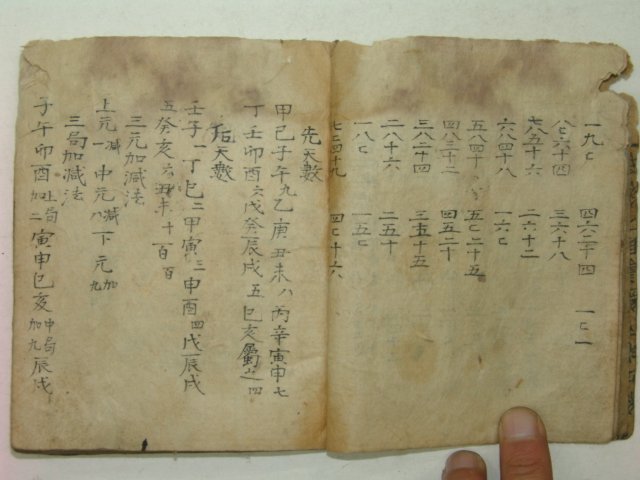 一九亡 四六二十四 一亡一
八七六十四 三六十八
七八五十六 二六十二
六八四十八 一六亡
五八四十 五亡二十五
四八三十二 四五二十
三八二十四 三五十五
二八十六 二五十
一八亡 一五亡
七七四十九 四亡十六
先天數
甲己子午九乙庚丑未八丙辛寅申七
丁壬卯酉六戊癸辰戌五巳亥屬之四
后天數
壬子一丁巳二甲寅三申酉四戊辰戌
五癸亥六丑未十百百
三元加減法
上元減一中元減八下元加九
三局加減法
子午卯酉上局加二寅申巳亥中局加九辰戌